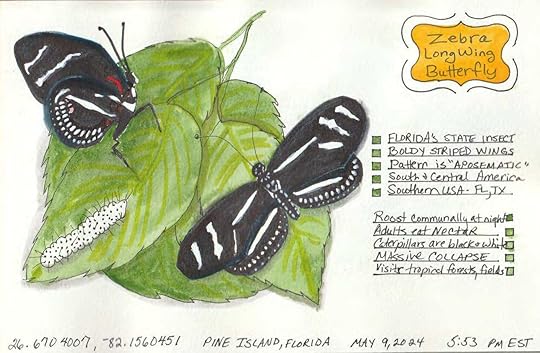 Zebra
LongWing
Butterfly
FLORIDA'S STATE INSECT
BOLDY STRIPED WINGS
Pattern is "APOSEMATIC"
South & Central America
Southern USA - FL, TX
Roost communally at night
Adults eat NECTAR
Caterpillars are black & white
MASSIVE COLLAPSE
Visits tropical forests, fields
26.6704007, -82.1560451 PINE ISLAND, FLORIDA MAY 9, 2024 5:53 PM EST